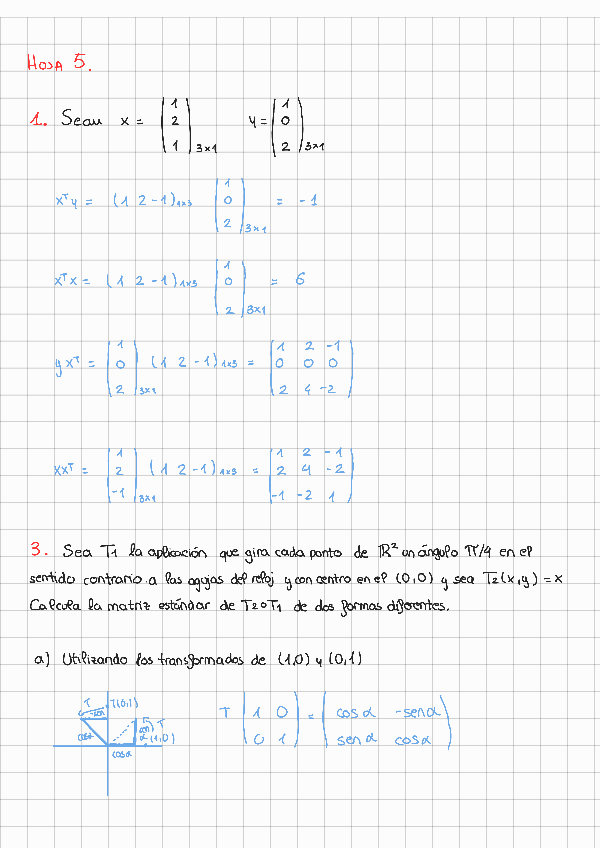 HOJA 5.
1. Sean x = (1 2 1) 3x1 y = (1 0 2) 3x1
xᵀy = (1 2 -1)1x3 (1 0 2) 3x1 = -1
xᵀx = (1 2 -1)1x3 (1 0 2) 3x1 = 6
yxᵀ = (1 0 2) 3x1 (1 2 -1)1x3 = (1 2 -1 0 0 0 2 4 -2)
xxᵀ = (1 2 -1) 3x1 (1 2 -1)1x3 = (1 2 -1 2 4 -2 -1 -2 1)
3. Sea T₁ la aplicación que gira cada punto de ℝ² un ángulo π/4 en el
sentido contrario a las agujas del reloj y con centro en el (0,0) y sea T₂(x,y) = x
Calcula la matriz estándar de T₂∘T₁ de dos formas diferentes.
a) Utilizando los transformados de (1,0) y (0,1)
T T(0,1)
T
(1,0)
cosα
T (1 0 0 1) = (cosα -senα senα cosα)